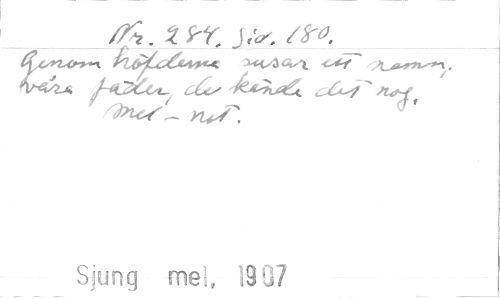 Nr. 284. Sid. 180.
Genom höfderna susar ett namn,
våra fäder, de kände det nog.
Mel-not.
Sjung mel, 1907